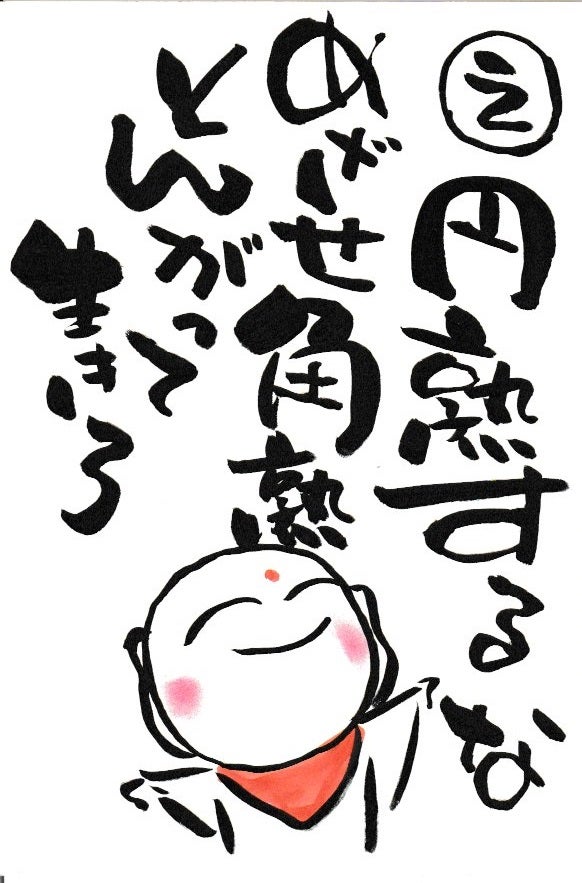 え 円熟するな
めざせ角熟
とんがって
生きろ